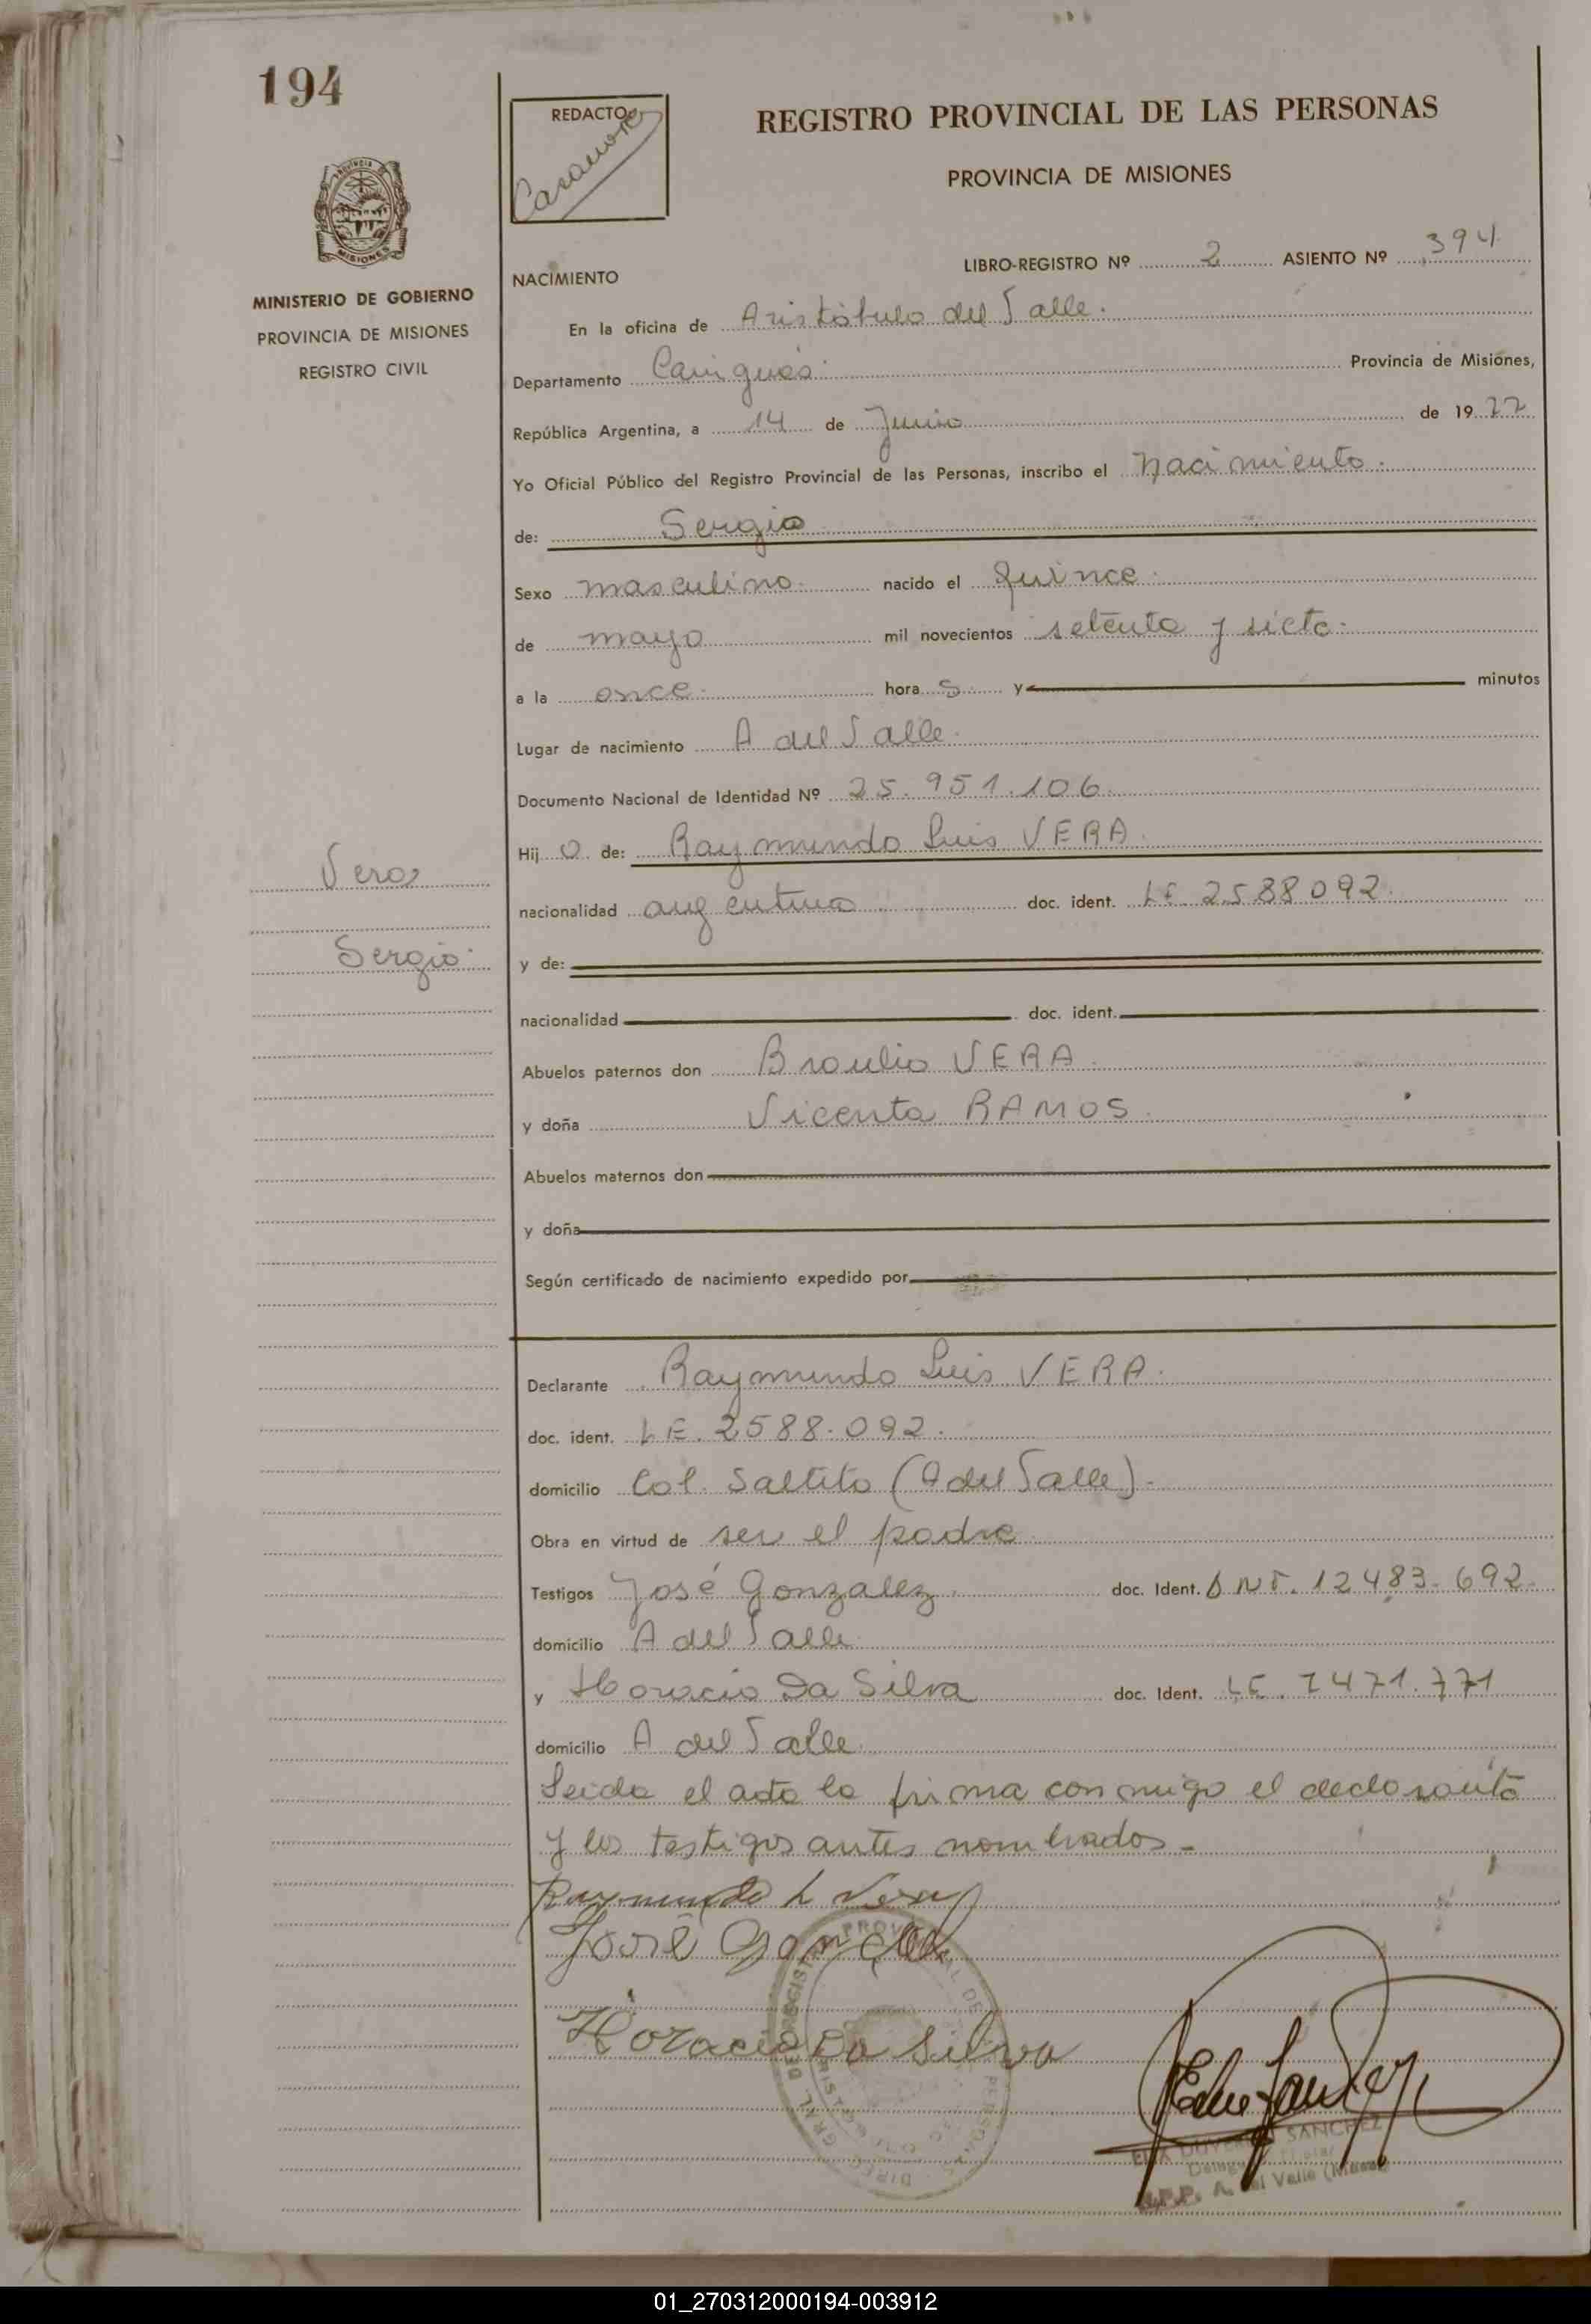 194
REDACTO
REGISTRO PROVINCIAL DE LAS PERSONAS
PROVINCIA DE MISIONES
MISIONES
MINISTERIO DE GOBIERNO
PROVINCIA DE MISIONES
REGISTRO CIVIL
LIBRO-REGISTRO Nº 2 ASIENTO Nº 394
NACIMIENTO
En la oficina de Aristóbulo del Valle.
Departamento Cainguás. Provincia de Misiones,
República Argentina, a 14 de Junio de 1977
Yo Oficial Público del Registro Provincial de las Personas, inscribo el nacimiento.
de: Sergio
Sexo masculino. nacido el Quince.
de mayo mil novecientos setenta y siete.
a la once. hora s y minutos
Lugar de nacimiento A del Valle.
Documento Nacional de Identidad Nº 25.951.106.
Hij o de: Raymundo Luis VERA.
Vera
nacionalidad argentina doc. ident. LE. 2588092.
Sergio.
y de:
nacionalidad doc. ident.
Abuelos paternos don Braulio VERA.
y doña Vicenta RAMOS.
Abuelos maternos don
y doña
Según certificado de nacimiento expedido por
Declarante Raymundo Luis VERA.
doc. ident. LE. 2588.092.
domicilio Col. Saltito (A del Valle).
Obra en virtud de ser el padre
Testigos José Gonzalez. doc. Ident. DNI. 12483.692.
domicilio A del Valle
y Horacio Da Silva doc. Ident. LE. 7471.771
domicilio A del Valle
Leida el acta la firma conmigo el declarante
y los testigos antes nombrados.-
Raymundo L Vera
José
Horacio Da Silva
SANCHEZ
A. del Valle
01_270312000194-003912